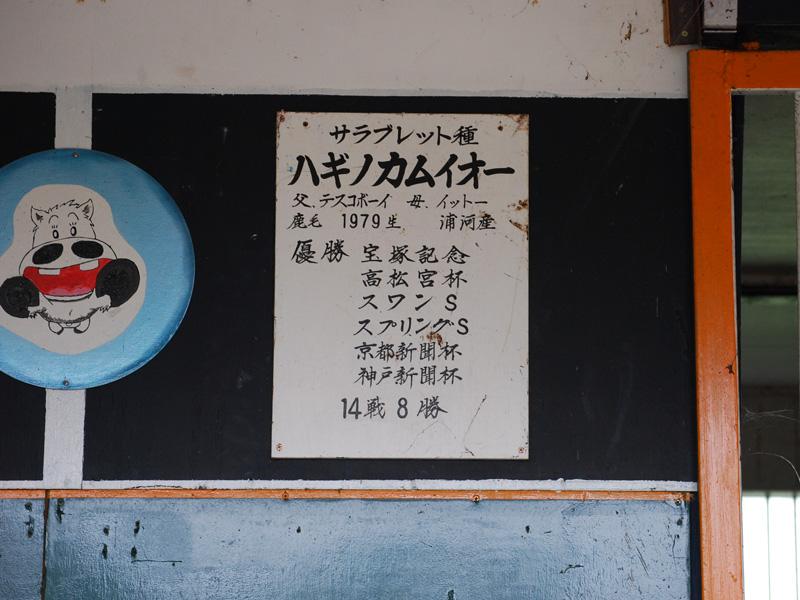 サラブレット種
ハギノカムイオー
父、テスコボーイ 母、イットー
鹿毛 1979生 浦河産
優勝 宝塚記念
高松宮杯
スワンS
スプリングS
京都新聞杯
神戸新聞杯
14戦8勝